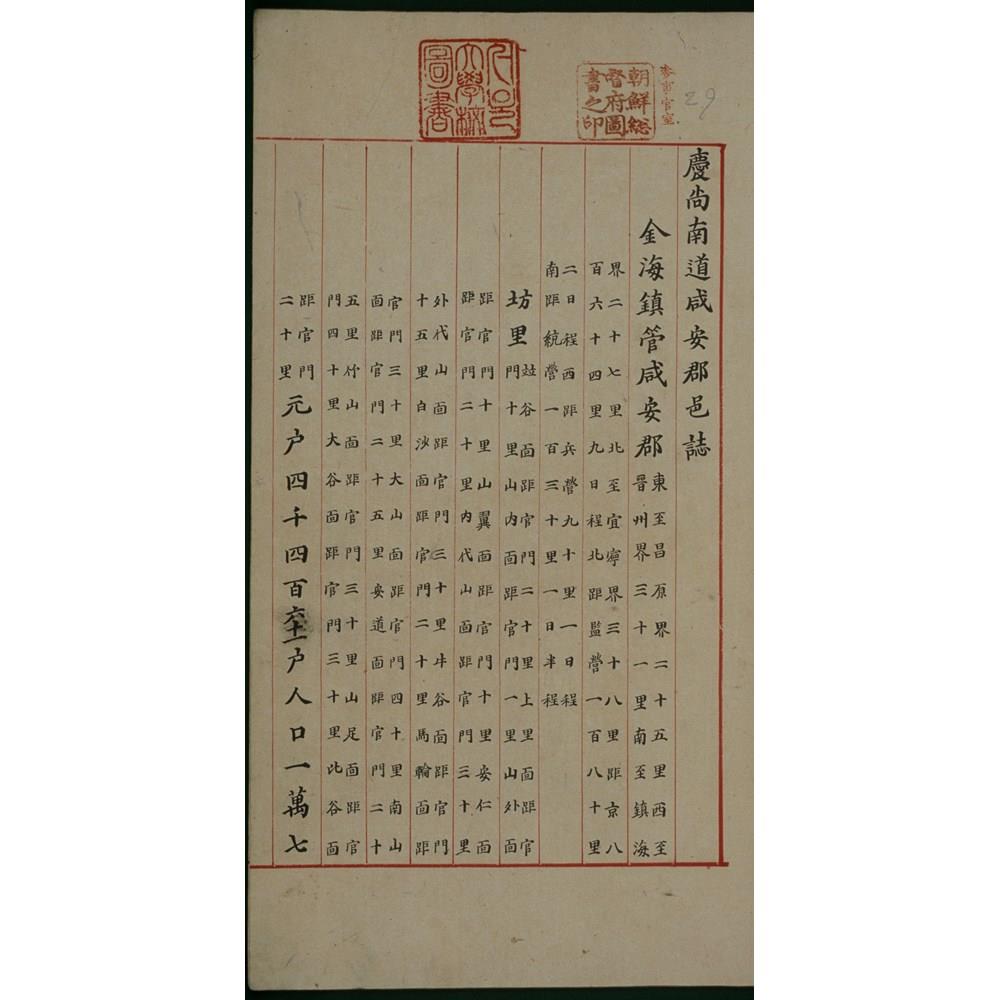 參事官室
29
朝鮮総
督府圖
書之印
서울
大學校
圖書
慶尚南道咸安郡邑誌
金海鎮管咸安郡
東至昌原界二十五里西至
晋州界三十一里南至鎮海
界二十七里北至宜寧界三十八里距京八
百六十四里九日程北距監營一百八十里
二日程西距兵營九十里一日程
南距統營一百三十里一日半程
坊里
並谷面距官門二十里上里面距官
門十里山内面距官門一里山外面
距官門十里山翼面距官門十里安仁面
距官門二十里内代山面距官門三十里
外代山面距官門三十里牛谷面距官門
十五里白沙面距官門二十里馬輪面距
官門三十里大山面距官門四十里南山
面距官門二十五里安道面距官門二十
五里竹山面距官門三十里山足面距官
門四十里大谷面距官門三十里比谷面
距官門
二十里
元戶四千四百六十一戶人口一萬七